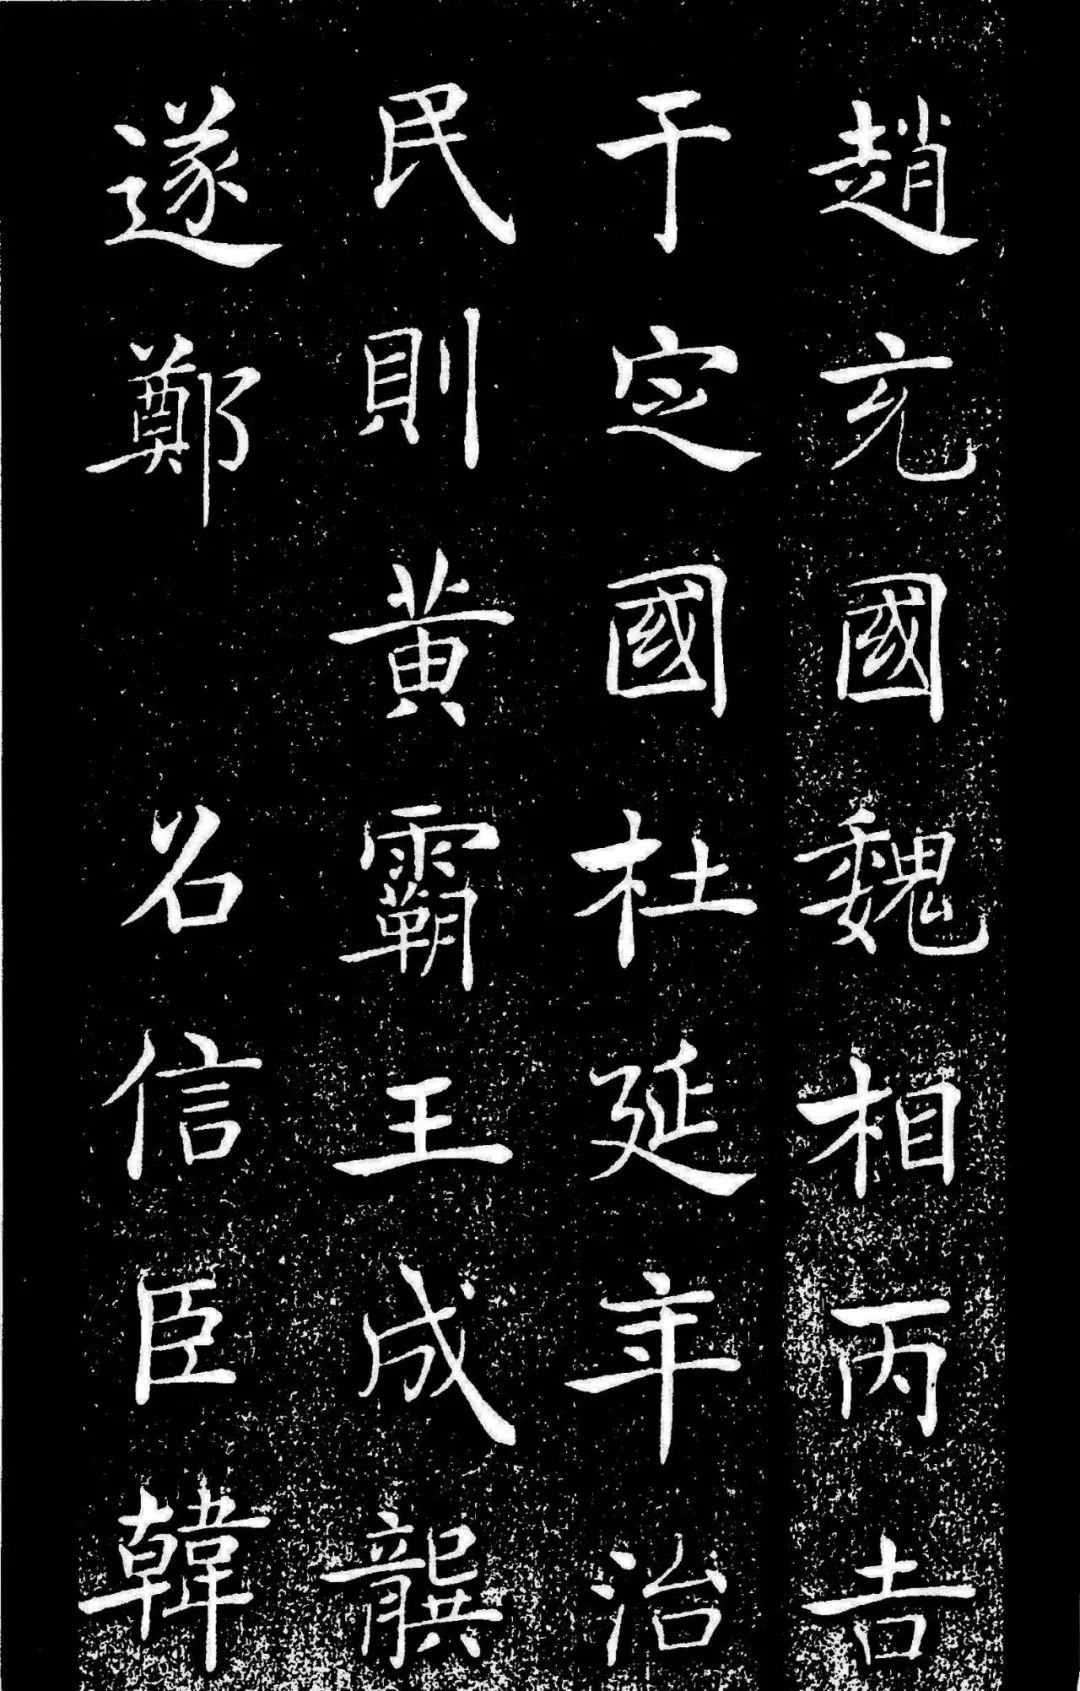 趙充國魏相丙吉
于定國杜延年治
民則黃霸王成龔
遂鄭 召信臣韓